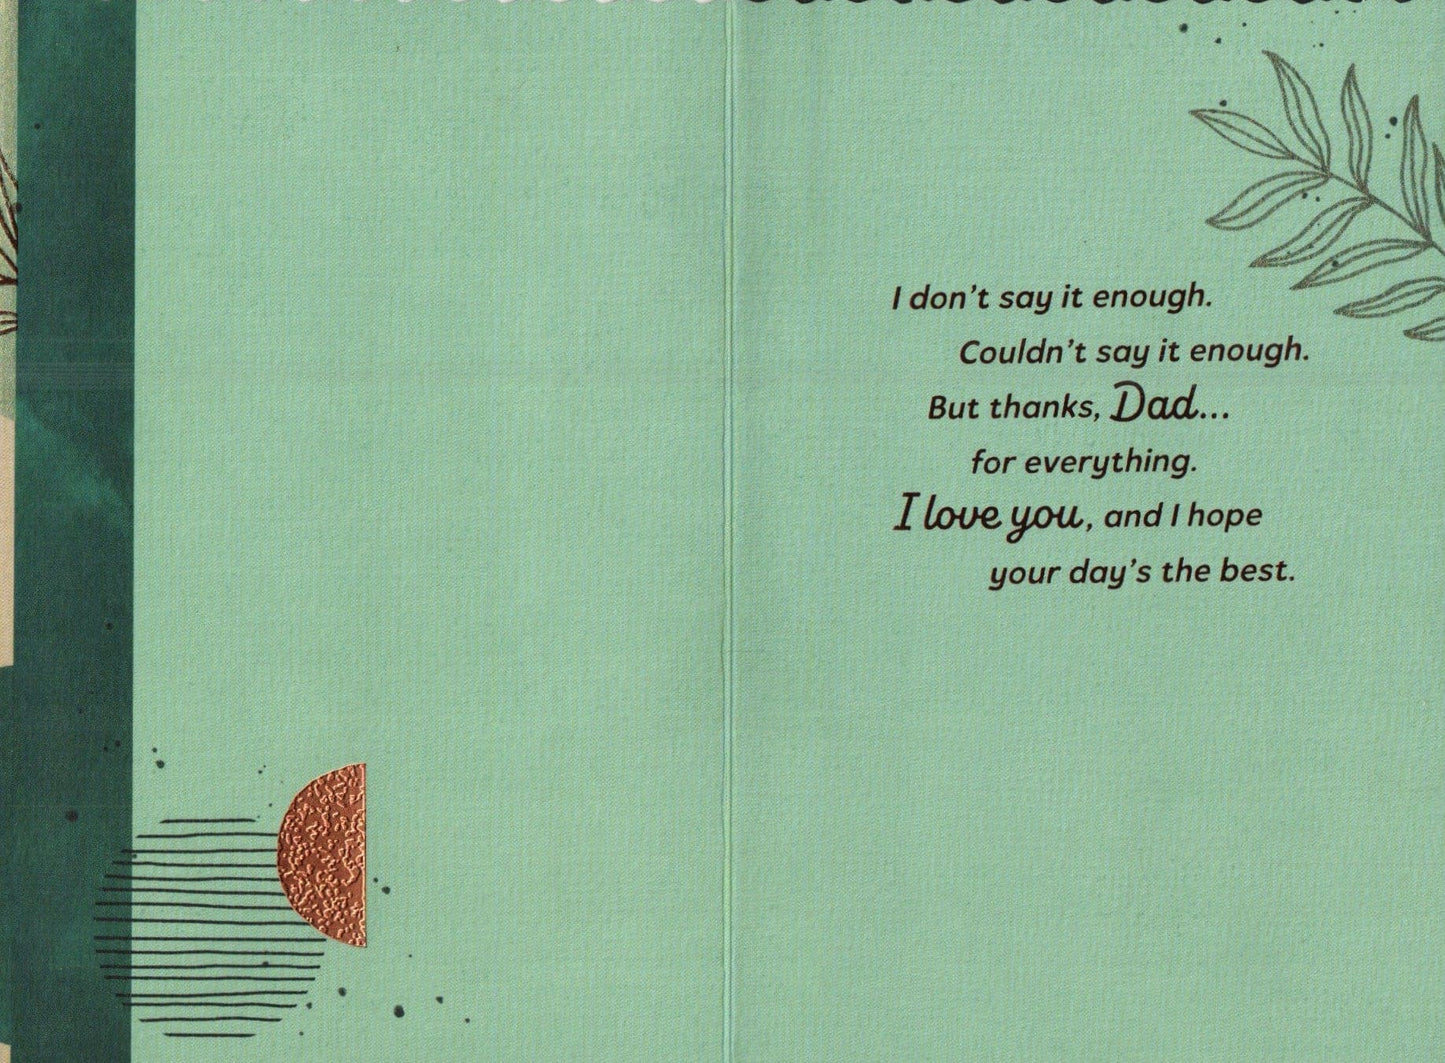 I don't say it enough.
Couldn't say it enough.
But thanks, Dad...
for everything.
I love you, and I hope
your day's the best.